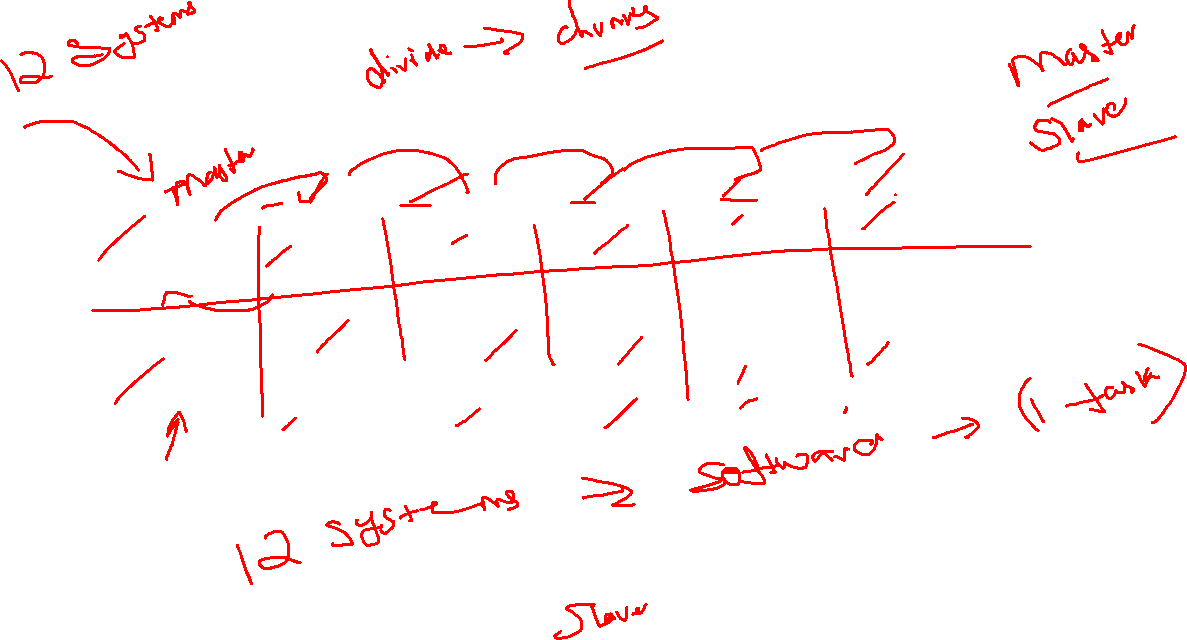 12 Systems
divide → chunks
Master
Slave
Master
12 systems → software → (1 task)
Slave